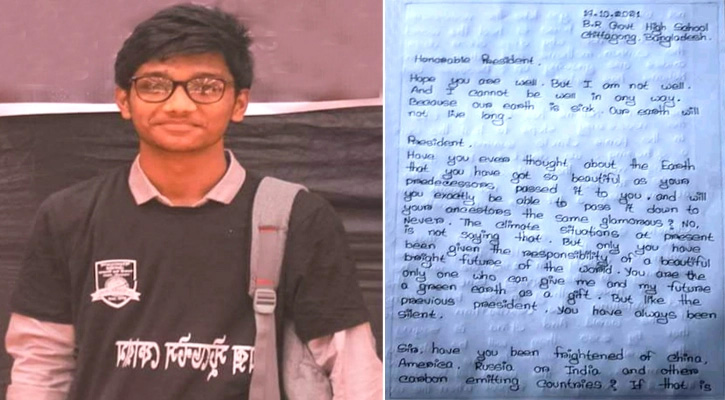 27.10.2021
B.R Govt High School
Chittagong, Bangladesh.
Honorable President.
Hope you are well. But I am not well.
And I cannot be well in any way.
Because our earth is sick. Our earth will
not live long.
President.
Have you ever thought about the Earth
that you have got so beautiful as your
predecessors, passed it to you. and will
you exactly be able to pass it down to
your ancestors the same glamorous? No,
Never. The climate situations at present
is not saying that. But only you have
been given the responsibility of a beautiful
bright future of the world. You are the
only one who can give me and my future
a green earth as a gift. But like the
previous president. You have always been
silent.
Sir, have you been frightened of China,
America, Russia or India and others
carbon emitting countries? If that is